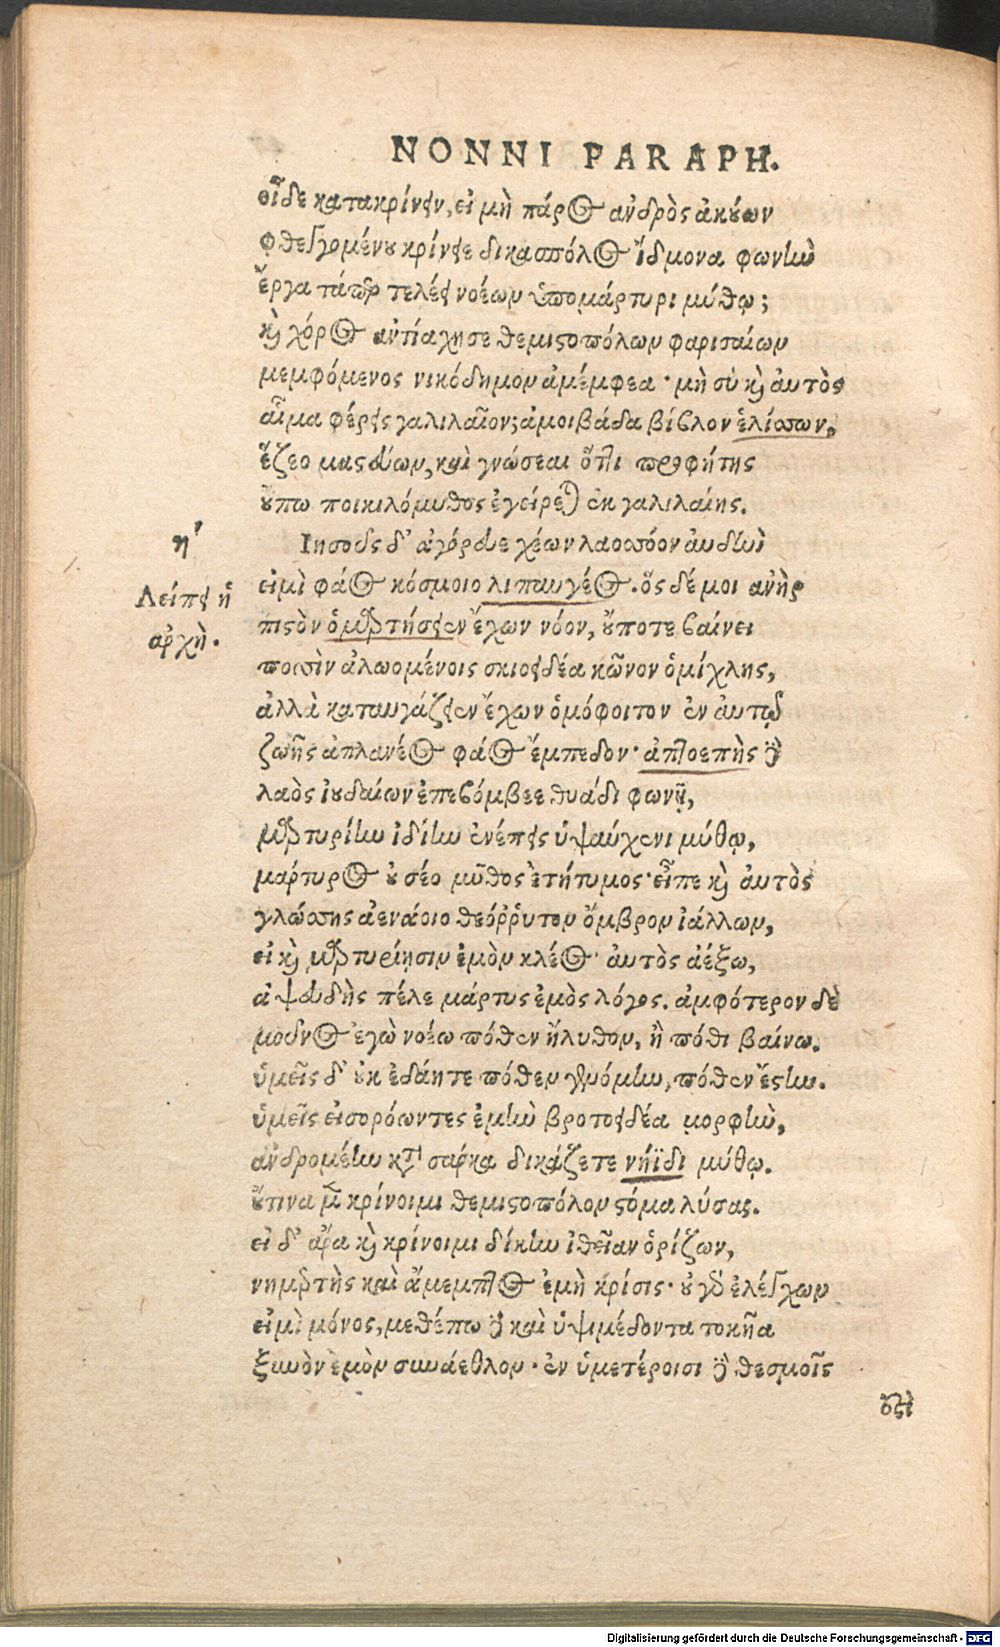 NONNI PARAPH.
οἶδε κατακρίνειν, εἰ μὴ πάρος ἀνδρὸς ἀκούων
φθεγγομένου κρίνειε δικασπόλος ἴδμονα φωνὴν
ἔργα τάπερ τελέει νοέων ὑπομάρτυρι μύθῳ;
καὶ χόρος ἀντιάχησε θεμιστοπόλων φαρισαίων
μεμφόμενος νικόδημον ἀμέμφεα· μὴ σὺ καὶ αὐτὸς
αἷμα φέρεις γαλιλαῖον; ἀμοιβάδα βίβλον ἑλίσσων,
ἕζεο μαστεύων, καὶ γνώσεαι ὅττι προφήτης
οὔπω ποικιλόμυθος ἐγείρεται ἐκ γαλιλαίης.
η'
Ἰησοῦς δ' ἀγόρευε χέων λαοσσόον αὐδὴν
Λείπει ἡ
εἰμὶ φάος κόσμοιο λιπαυγέος. ὃς δέ μοι ἀνὴρ
ἀρχὴ.
πιστὸν ὁμαρτήσειεν ἔχων νόον, οὔποτε βαίνει
ποσσὶν ἀλωομένοις σκιοειδέα κῶνον ὁμίχλης,
ἀλλὰ καταυγάζειεν ἔχων ὁμόφοιτον ἐν αὐτῷ
ζωῆς ἀπλανέος φάος ἔμπεδον· ἀπτοεπὴς δὲ
λαὸς ἰουδαίων ἐπεβόμβεε θυιάδι φωνῇ,
μαρτυρίην ἰδίην ἐνέπεις ὑψαύχενι μύθῳ,
μάρτυρος οὐ σέο μῦθος ἐτήτυμος· εἶπε καὶ αὐτὸς
γλώσσης ἀενάοιο θεόῤῥυτον ὄμβρον ἰάλλων,
εἰ καὶ μαρτυρίῃσιν ἐμὸν κλέος αὐτὸς ἀέξω,
ἀψευδὴς πέλε μάρτυς ἐμὸς λόγος. ἀμφότερον δὲ
μοῦνος ἐγὼ νοέω πόθεν ἤλυθον, ἢ πόθι βαίνω.
ὑμεῖς δ' οὐκ ἐδάητε πόθεν γενόμην, πόθεν ἔστην.
ὑμεῖς εἰσορόωντες ἐμὴν βροτοειδέα μορφὴν,
ἀνδρομέην κατὰ σάρκα δικάζετε νήϊδι μύθῳ.
οὔτινα μὲν κρίνοιμι θεμιστοπόλον στόμα λύσας.
εἰ δ' ἄρα καὶ κρίνοιμι δίκην ἰθεῖαν ὁρίζων,
νημερτὴς καὶ ἄμεμπτος ἐμὴ κρίσις· οὐ γὰρ ἐλέγχων
εἰμὶ μόνος, μεθέπω δὲ καὶ ὑψιμέδοντα τοκῆα
ξυνὸν ἐμὸν συνάεθλον· ἐν ὑμετέροισι δὲ θεσμοῖς
ἐστὶ